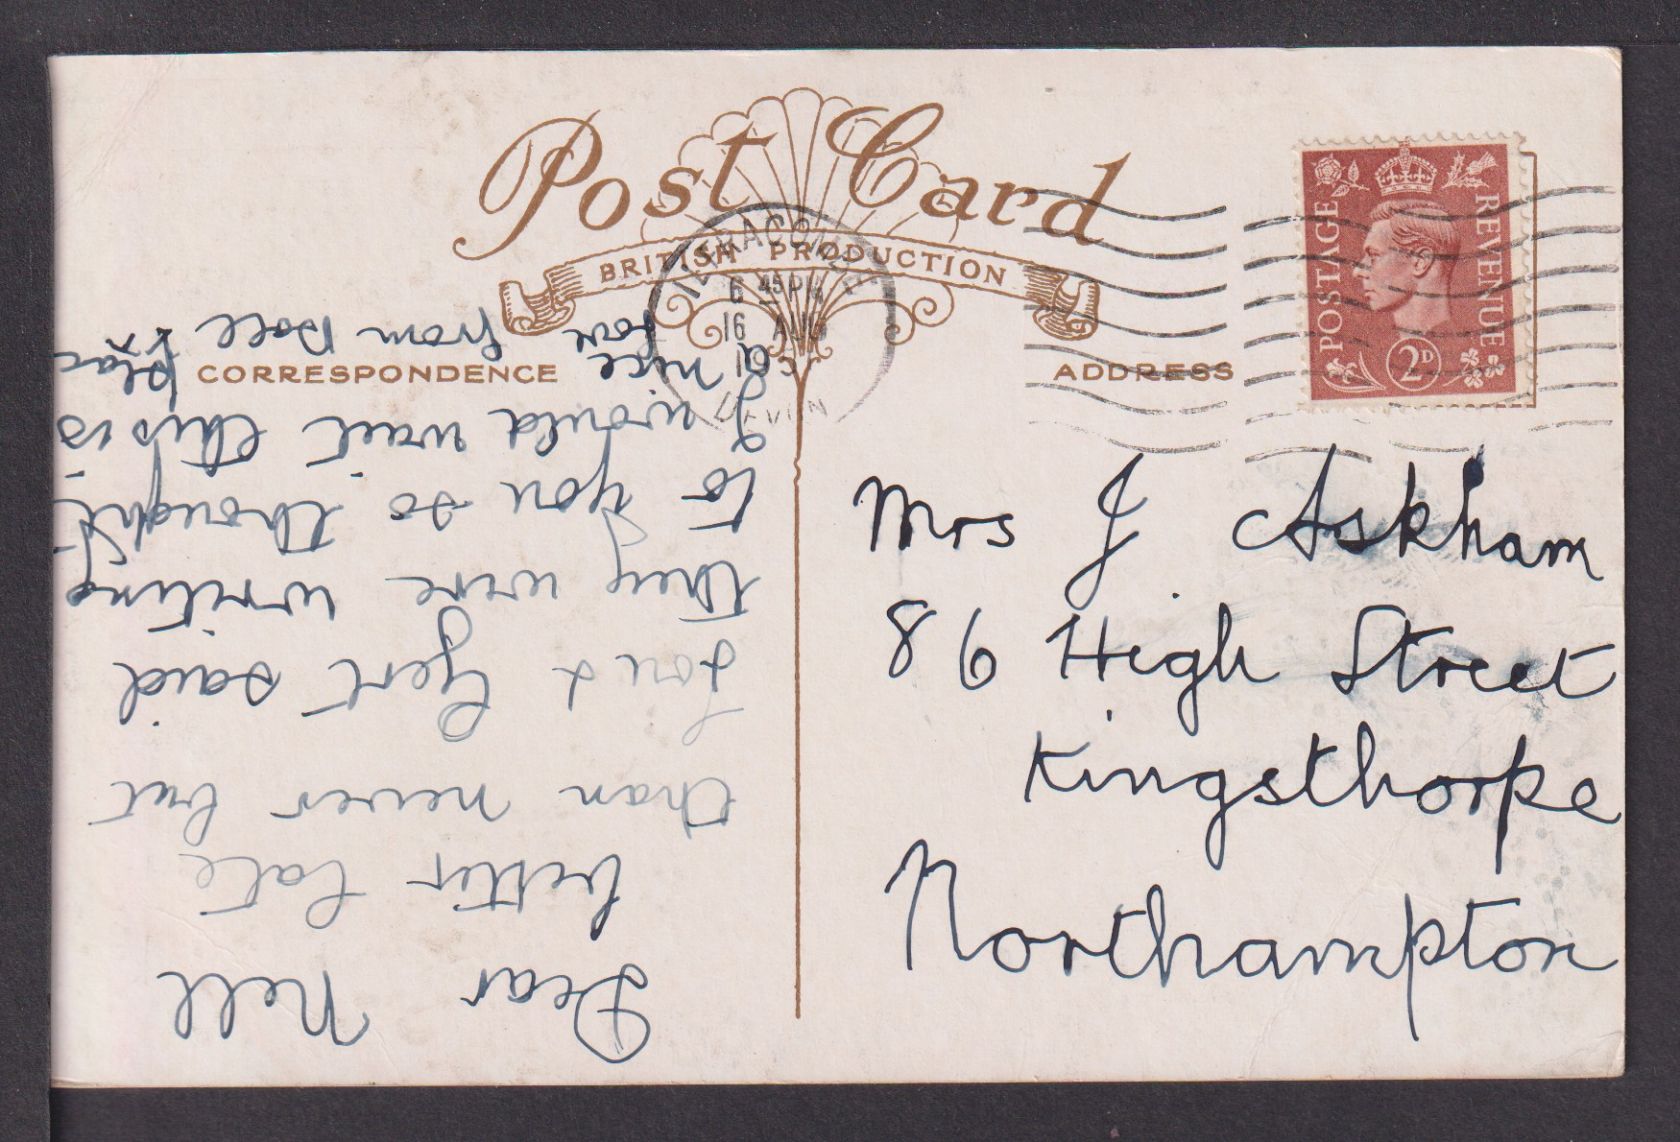 Post Card
BRITISH PRODUCTION
CORRESPONDENCE
ADDRESS
ILFRACOMBE
6 45 PM
16 AUG
DEVON
POSTAGE
REVENUE
2D
Mrs J Askham
86 High Street
Kingsthorpe
Northampton
Dear Nell
better late
than never but
Lou & Gert said
they were writing
to you so thought
I would wait this is
a nice plac
from Doll xx